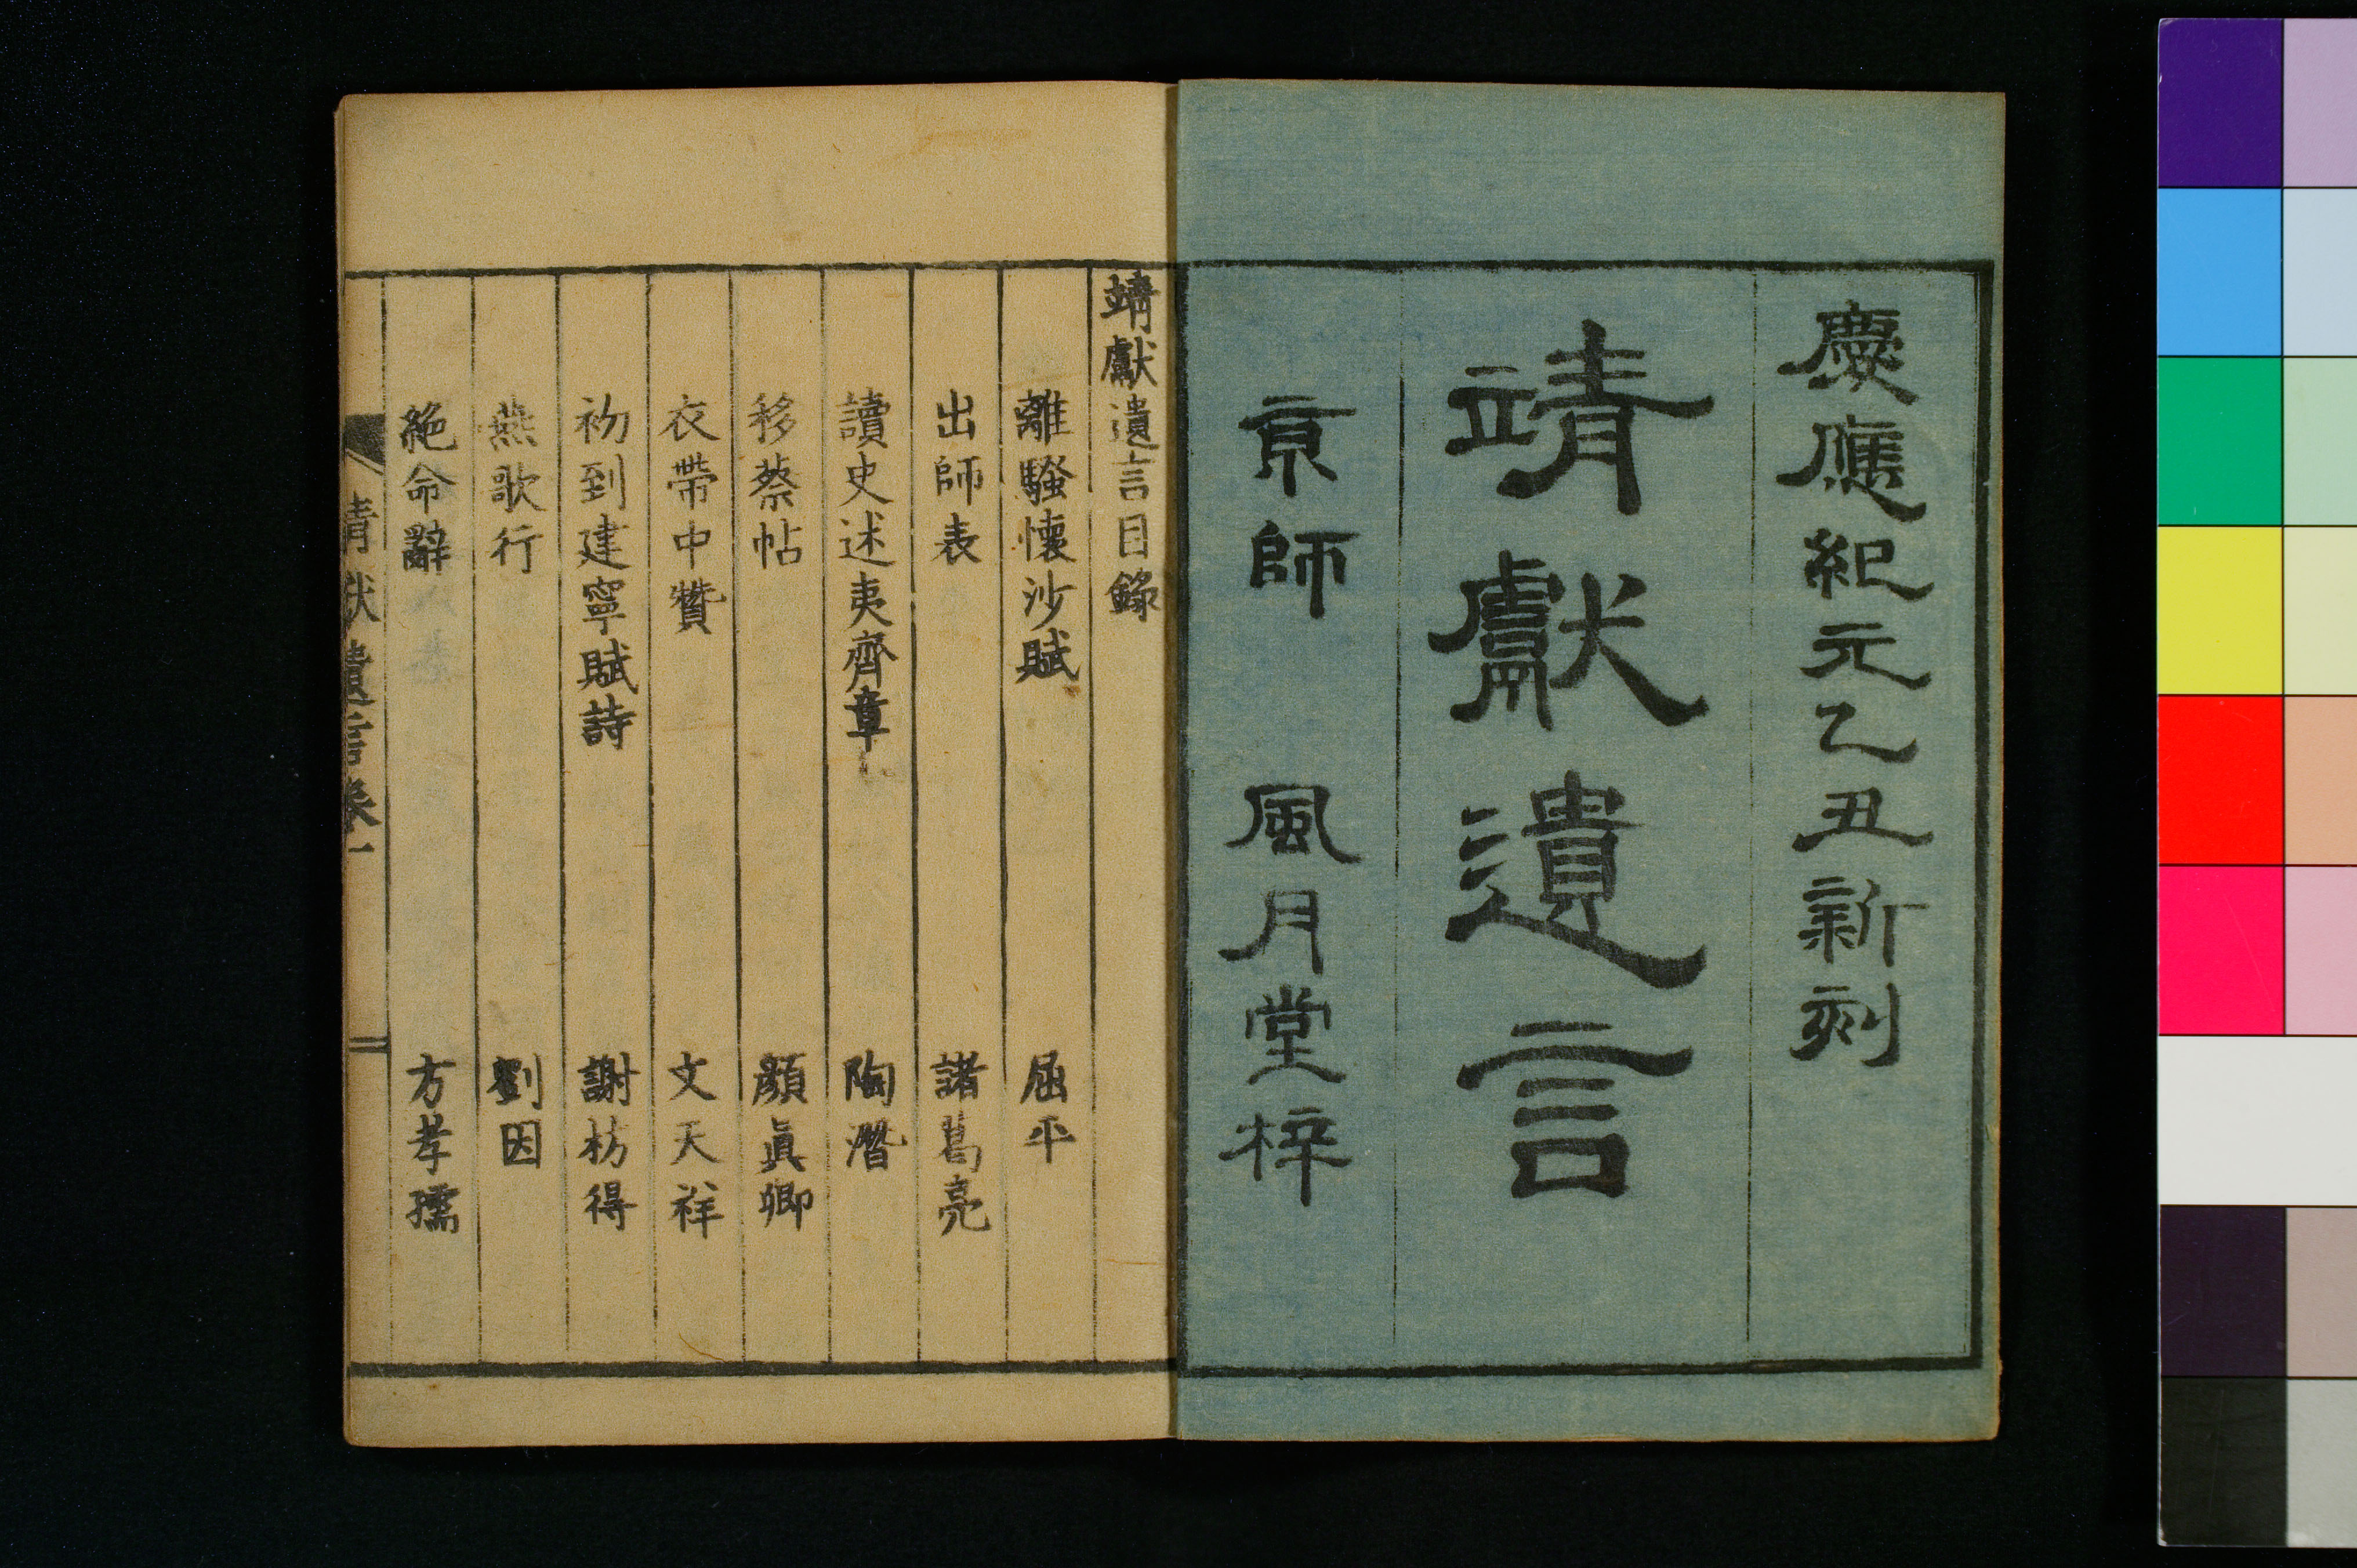 慶應紀元乙丑新刻
靖獻遺言
京師　風月堂梓
靖獻遺言目錄
離騷懷沙賦　屈平
出師表　諸葛亮
讀史述夷齊章　陶潛
移蔡帖　顏眞卿
衣帶中贊　文天祥
初到建寧賦詩　謝枋得
燕歌行　劉因
絶命辭　方孝孺
靖獻遺言卷一